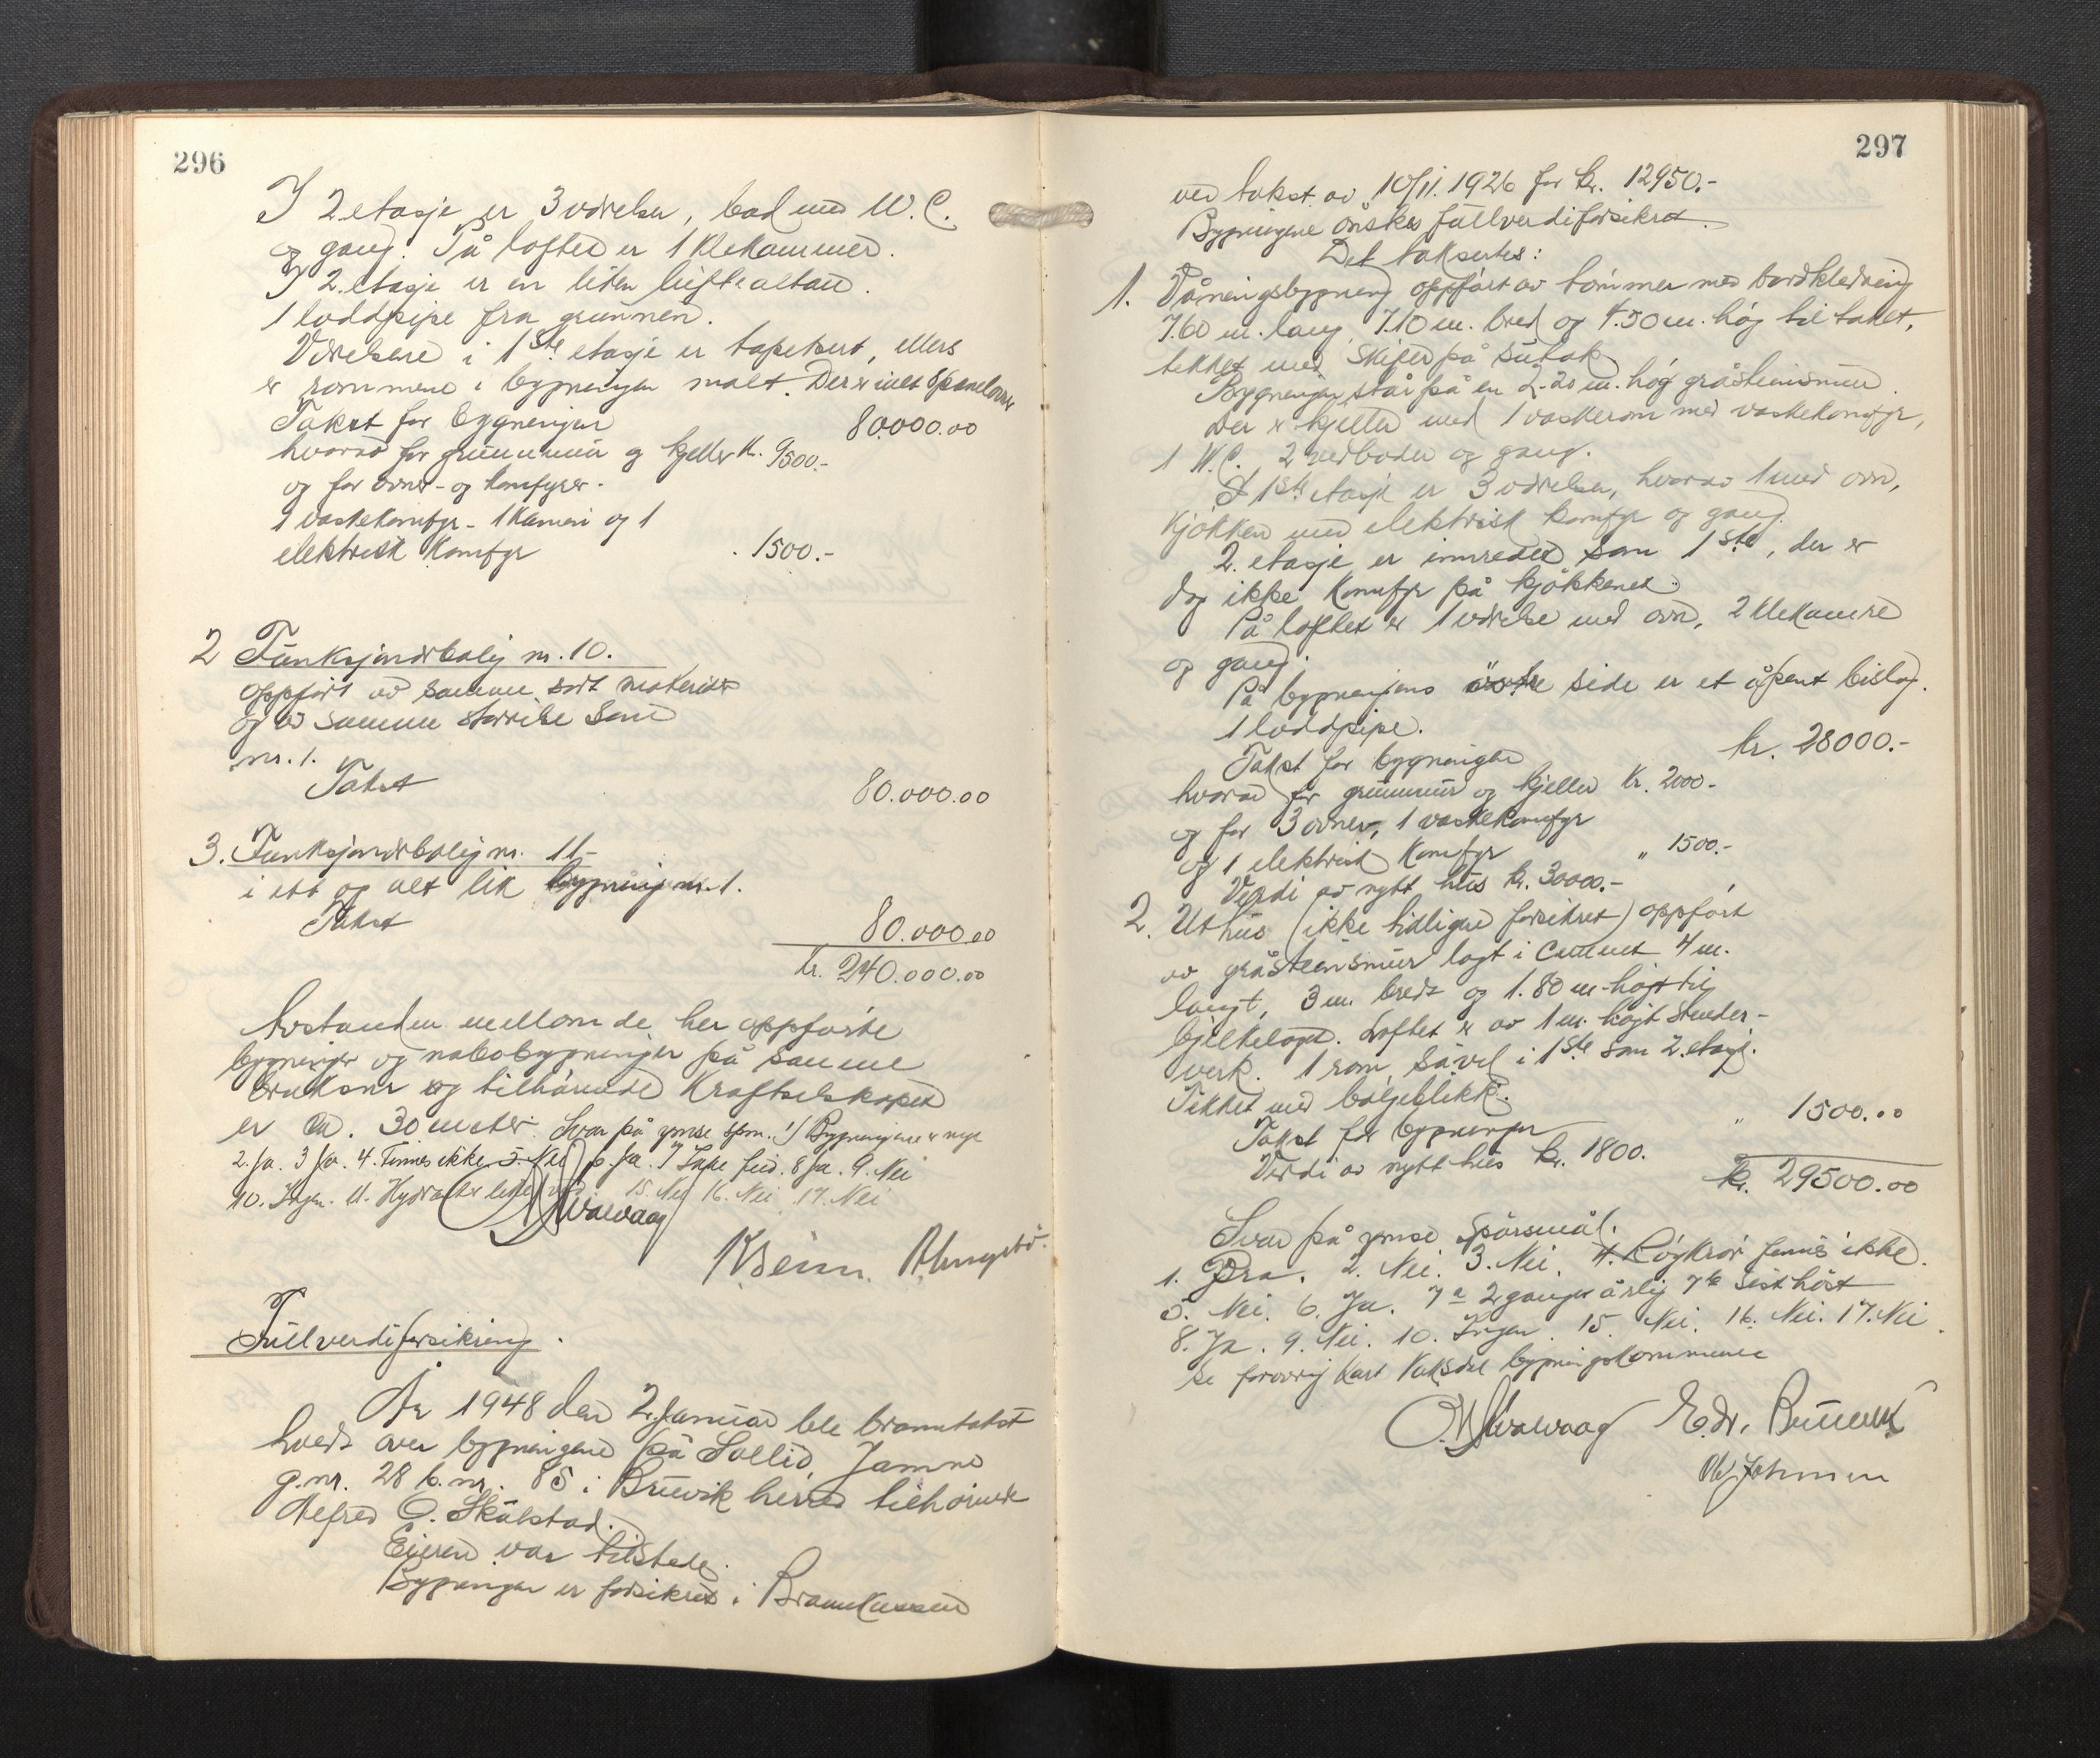 296
I 2. etasje er 3 værelser, bad med W.C.
og gang. På loftet er 1 klekammer.
I 2. etasje er en liten luftealtan.
1 loddpipe fra grunnen.
Værelsene i 1ste etasje er tapetsert, ellers
er rommene i bygningen malt. Der er intet
Takst for bygningen 80000.00
hvorav for grunnmur og kjeller kr. 9500.-
og for ovner- og komfyrer.
1 vaskekomfyr - 1 kamin og 1
elektrisk komfyr . 1500.-
2 Funksjonærbolig nr. 10.
oppført av samme sort materialer
og av samme størrelse som
nr. 1.
Takst 80.000.00
3. Funksjonærbolig nr. 11-
i ett og alt lik bygning nr. 1.
Takst 80.000.00
kr. 240.000.00
Avstanden mellom de her oppførte
bygninger og nabobygninger på samme
bruksnr og tilhørende Kraftselskapet
er ca. 30 meter. Svar på ymse spm. 1/ Bygningene er nye
2. Ja. 3 Ja. 4. Finnes ikke 5. Nei 6. Ja. 7 8 Ja. 9. Nei
10. Ingen. 11. Hydranter 15. Nei 16. Nei 17. Nei
Fullverdiforsikring.
År 1948 den 2. januar ble branntakst
holdt over bygningene på Sollid, Jamne
g.nr. 28 b.nr. 85 i Bruvik herred tilhørende
Alfred O. Skulstad.
Eieren var tilstede.
Bygningen er forsikret i Brannkassen
297
ved takst av 10/11. 1926 for kr. 12950.-
Bygningene ønskes fullverdiforsikret.
Det taksertes:
1. Våningsbygning oppført av tømmer med bordkledning
7.60 m. lang, 7.10 m. bred og 4.50 m. høg til taket,
tekket med skifer på sutak
Bygningen står på en 2.20 m. høg gråsteinsmur.
Der er kjeller med 1 vaskerom med vaskekomfyr,
1 W.C. 2 vedboder og gang.
I 1ste etasje er 3 værelser, hvorav 1 med ovn,
kjøkken med elektrisk komfyr og gang.
2. etasje er innredet som 1ste, der er
dog ikke komfyr på kjøkkenet.
På loftet er 1 værelse med ovn, 2 klekamre
og gang.
På bygningens østre side er et åpent bislag.
1 loddpipe.
Takst for bygningen kr. 28000.-
hvorav for grunnmur og kjeller kr. 2000.-
og for 3 ovner, 1 vaskekomfyr
og 1 elektrisk komfyr " 1500.-
Verdi av nytt hus kr. 30000.-
2. Uthus (ikke tidligere forsikret) oppført
av gråsteinsmur lagt i cement 4 m.
langt, 3 m. bredt og 1.80 m. høgt til
bjelkelaget. Loftet er av 1 m. høgt stender-
verk. 1 rom, såvel i 1ste som 2. etasje.
Tekket med bølgeblikk.
Takst for bygningen " 1500.00
Verdi av nytt hus kr. 1800.
kr. 29500.00
Svar på ymse spørsmål.
1. Bra. 2. Nei. 3. Nei. 4. Røykrør finnes ikke.
5. Nei. 6. Ja. 7 a 2 ganger årlig 7 b sisthøst
8. Ja. 9. Nei. 10. Ingen. 15. Nei. 16. Nei. 17. Nei.
Se forøvrig kart Vaksdal bygningskommune